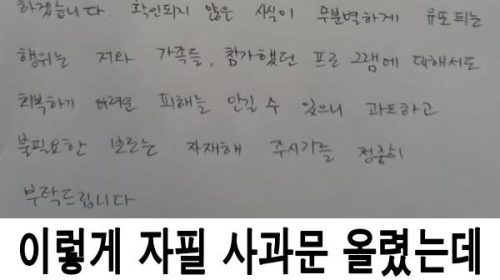 하겠습니다. 확인되지 않은 사실이 무분별하게 유포되는
행위는 저와 가족들, 참가했던 프로그램에 대해서도
회복하기 어려운 피해를 안길 수 있으니 과도하고
불필요한 보도는 자제해 주시기를 정중히
부탁드립니다
이렇게 자필 사과문 올렸는데